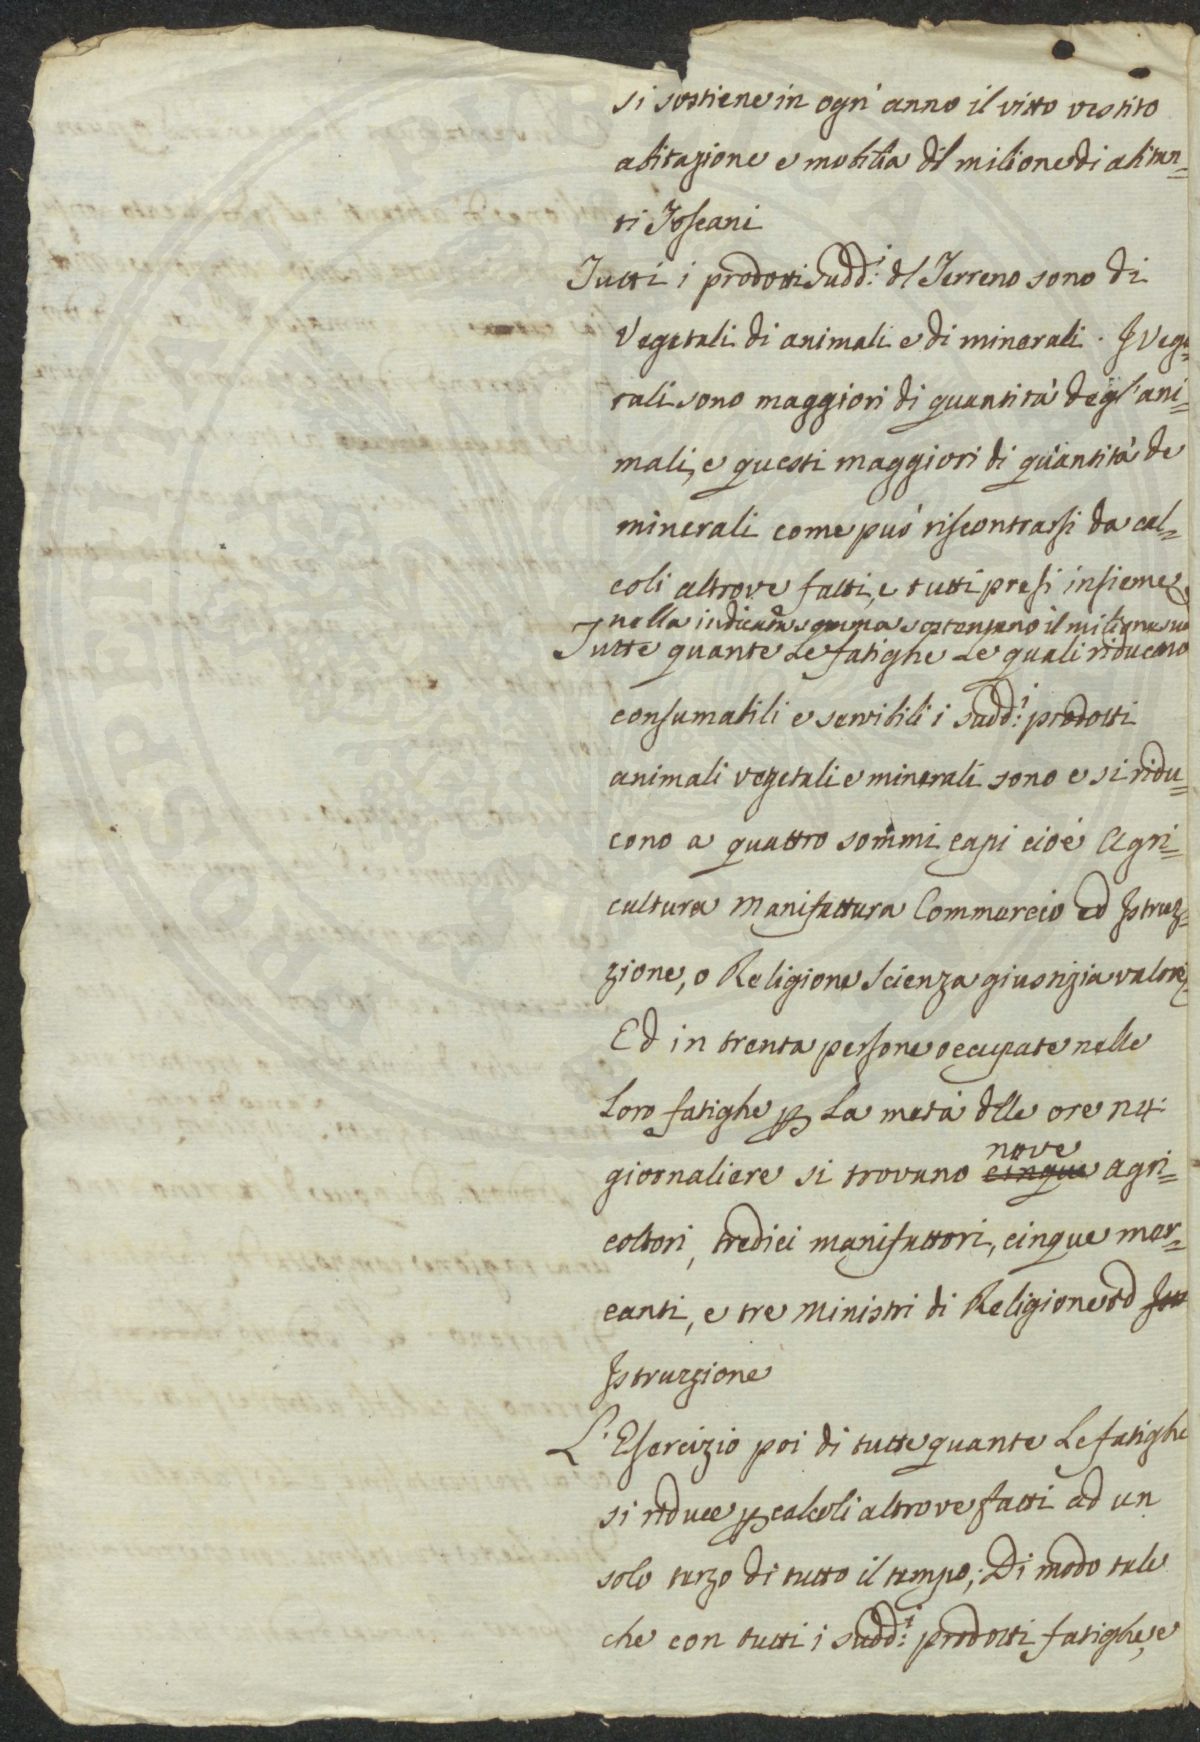 si sostiene in ogn' anno il vitto vestito
abitazione e mobilia dl milione di abitan=
ti Toscani
Tutti i prodotti sudd:i dl Terreno sono di
Vegetali di animali e di minerali. I Vege=
tali sono maggiori di quantità degl' ani=
mali, e questi maggiori di quantità de
minerali come può riscontrarsi da cal=
coli altrove fatti, e tutti presi insieme
nella indicata somma sostentano il milione sud
Tutte quante Le fatighe Le quali riducono
consumabili e servibili i sudd:i prodotti
animali vegetali e minerali sono e si ridu=
cono a quattro sommi capi cioè Agri=
cultura Manifattura Commercio ed Istruz=
zione, o Religione Scienza giustizia valore
Ed in trenta persone occupate nelle
Loro fatighe p La metà dlle ore 24:
giornaliere si trovano cinque nove agri=
coltori, tredici manifattori, cinque mer=
canti, e tre Ministri di Religione ed Istr
Istruzione
L' Esercizio poi di tutte quante Le fatighe
si riduce p calcoli altrove fatti ad un
solo terzo di tutto il tempo; Di modo tale
che con tutti i sudd:i prodotti fatighe, e